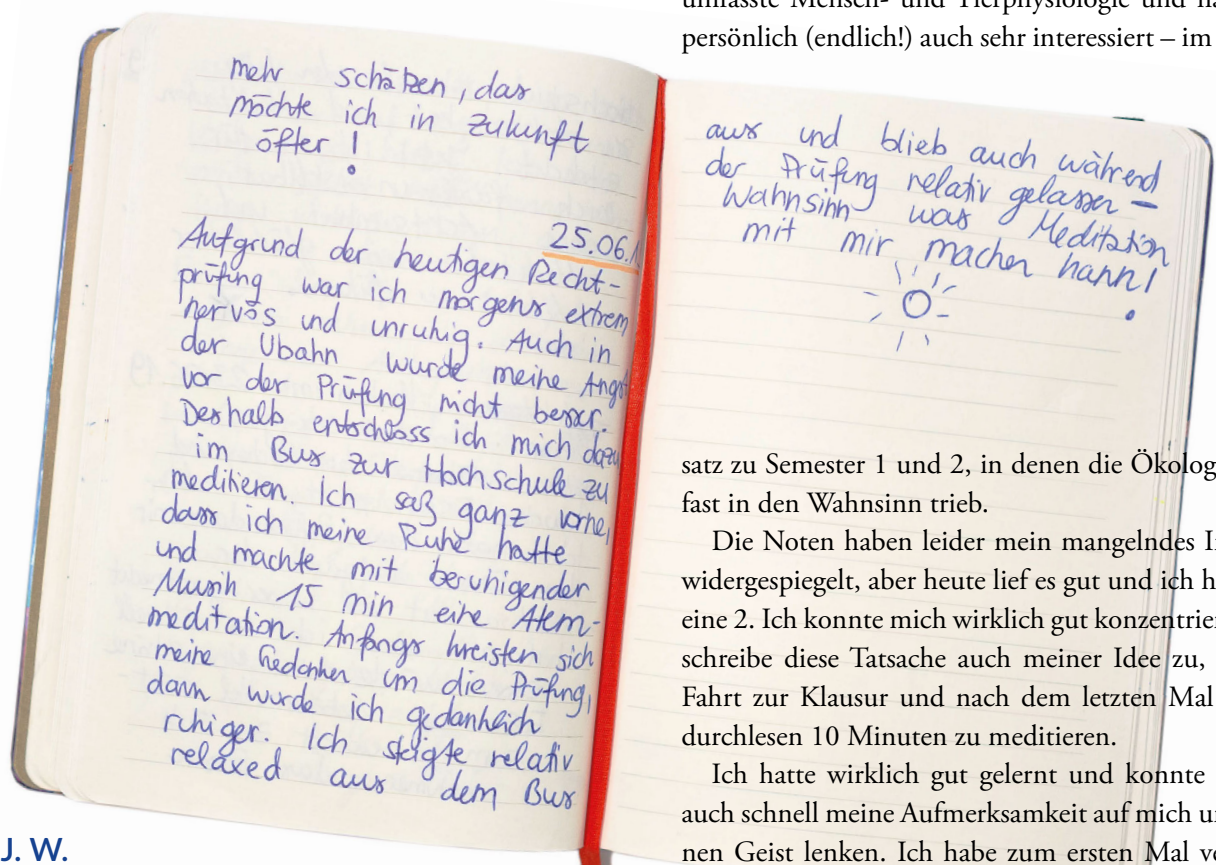 mehr schätzen, das
möchte ich in Zukunft
öfter!
25.06.1
Aufgrund der heutigen Recht-
prüfung war ich morgens extrem
nervös und unruhig. Auch in
der Ubahn wurde meine Angst
vor der Prüfung nicht besser.
Deshalb entschloss ich mich dazu
im Bus zur Hochschule zu
meditieren. Ich saß ganz vorne,
dass ich meine Ruhe hatte
und machte mit beruhigender
Musik 15 min eine Atem-
meditation. Anfangs kreisten sich
meine Gedanken um die Prüfung,
dann wurde ich gedanklich
ruhiger. Ich steigte relativ
relaxed aus dem Bus
J. W.
umfasste Mensch- und Tierphysiologie und
persönlich (endlich!) auch sehr interessiert – im
aus und blieb auch während
der Prüfung relativ gelassen –
Wahnsinn was Meditation
mit mir machen kann!
satz zu Semester 1 und 2, in denen die Ökolog
fast in den Wahnsinn trieb.
Die Noten haben leider mein mangelndes
widergespiegelt, aber heute lief es gut und ich
eine 2. Ich konnte mich wirklich gut konzentrier
schreibe diese Tatsache auch meiner Idee zu,
Fahrt zur Klausur und nach dem letzten Mal
durchlesen 10 Minuten zu meditieren.
Ich hatte wirklich gut gelernt und konnte
auch schnell meine Aufmerksamkeit auf mich
nen Geist lenken. Ich habe zum ersten Mal